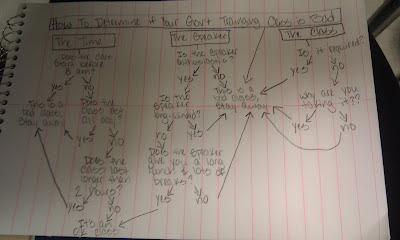 How To Determine if Your Gov't Training Class is Bad
The Time
Does the class
start before
8 am?
yes
no
This is a
bad class,
stay away
Does the
class last
all day?
yes
no
Does the
class last
longer than
2 hours?
yes
no
It's an
OK class
The Speaker
Is the speaker
enthusiastic?
yes
no
Is the
speaker
long-winded?
This is a
bad class,
stay away
no
yes
Does the speaker
give you a long
lunch & lots of
breaks?
yes
no
The Class
Is it required?
yes
no
Why are you
taking it??
yes
no